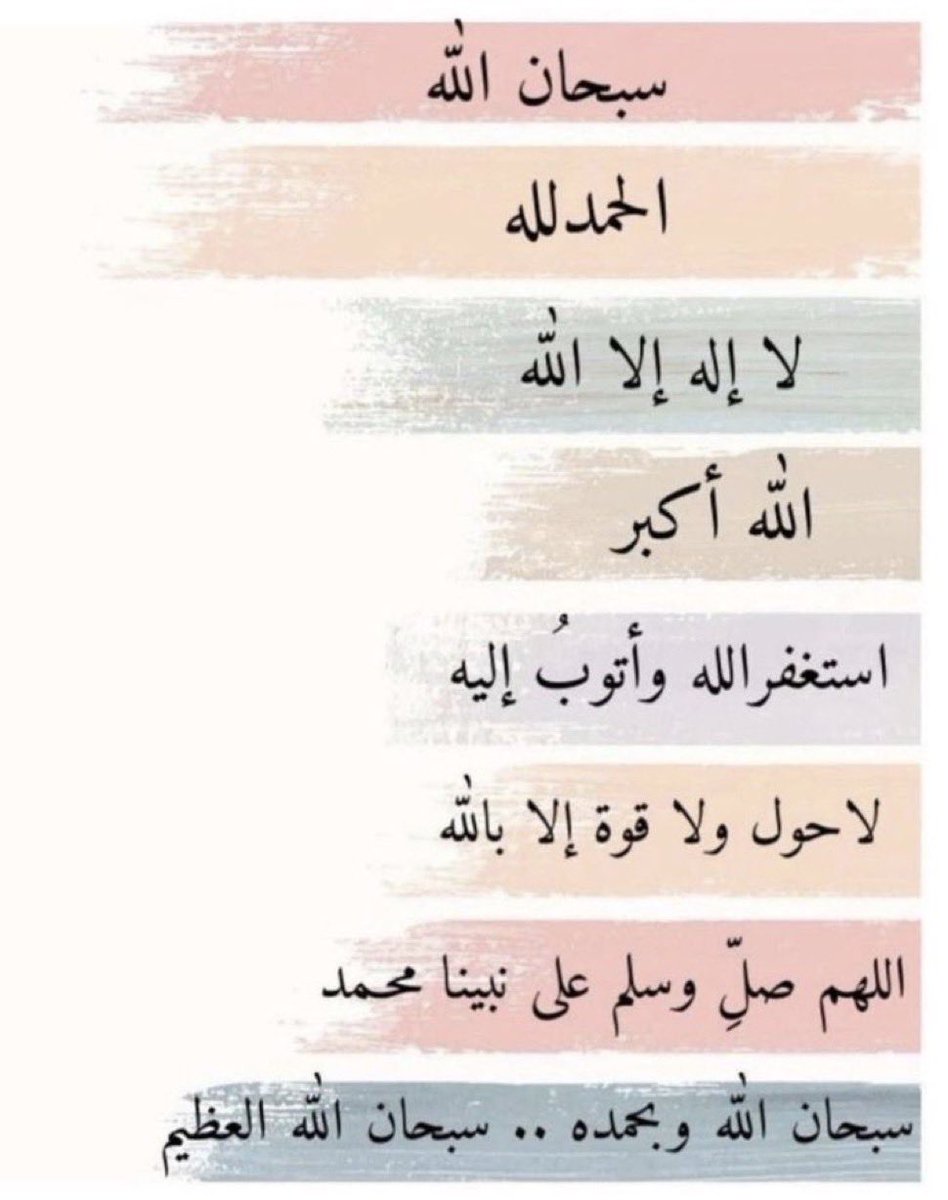 سبحان الله
الحمدلله
لا إله إلا الله
الله أكبر
استغفرالله وأتوبُ إليه
لاحول ولا قوة إلا بالله
اللهم صلِّ وسلم على نبينا محمد
سبحان الله وبحمده .. سبحان الله العظيم